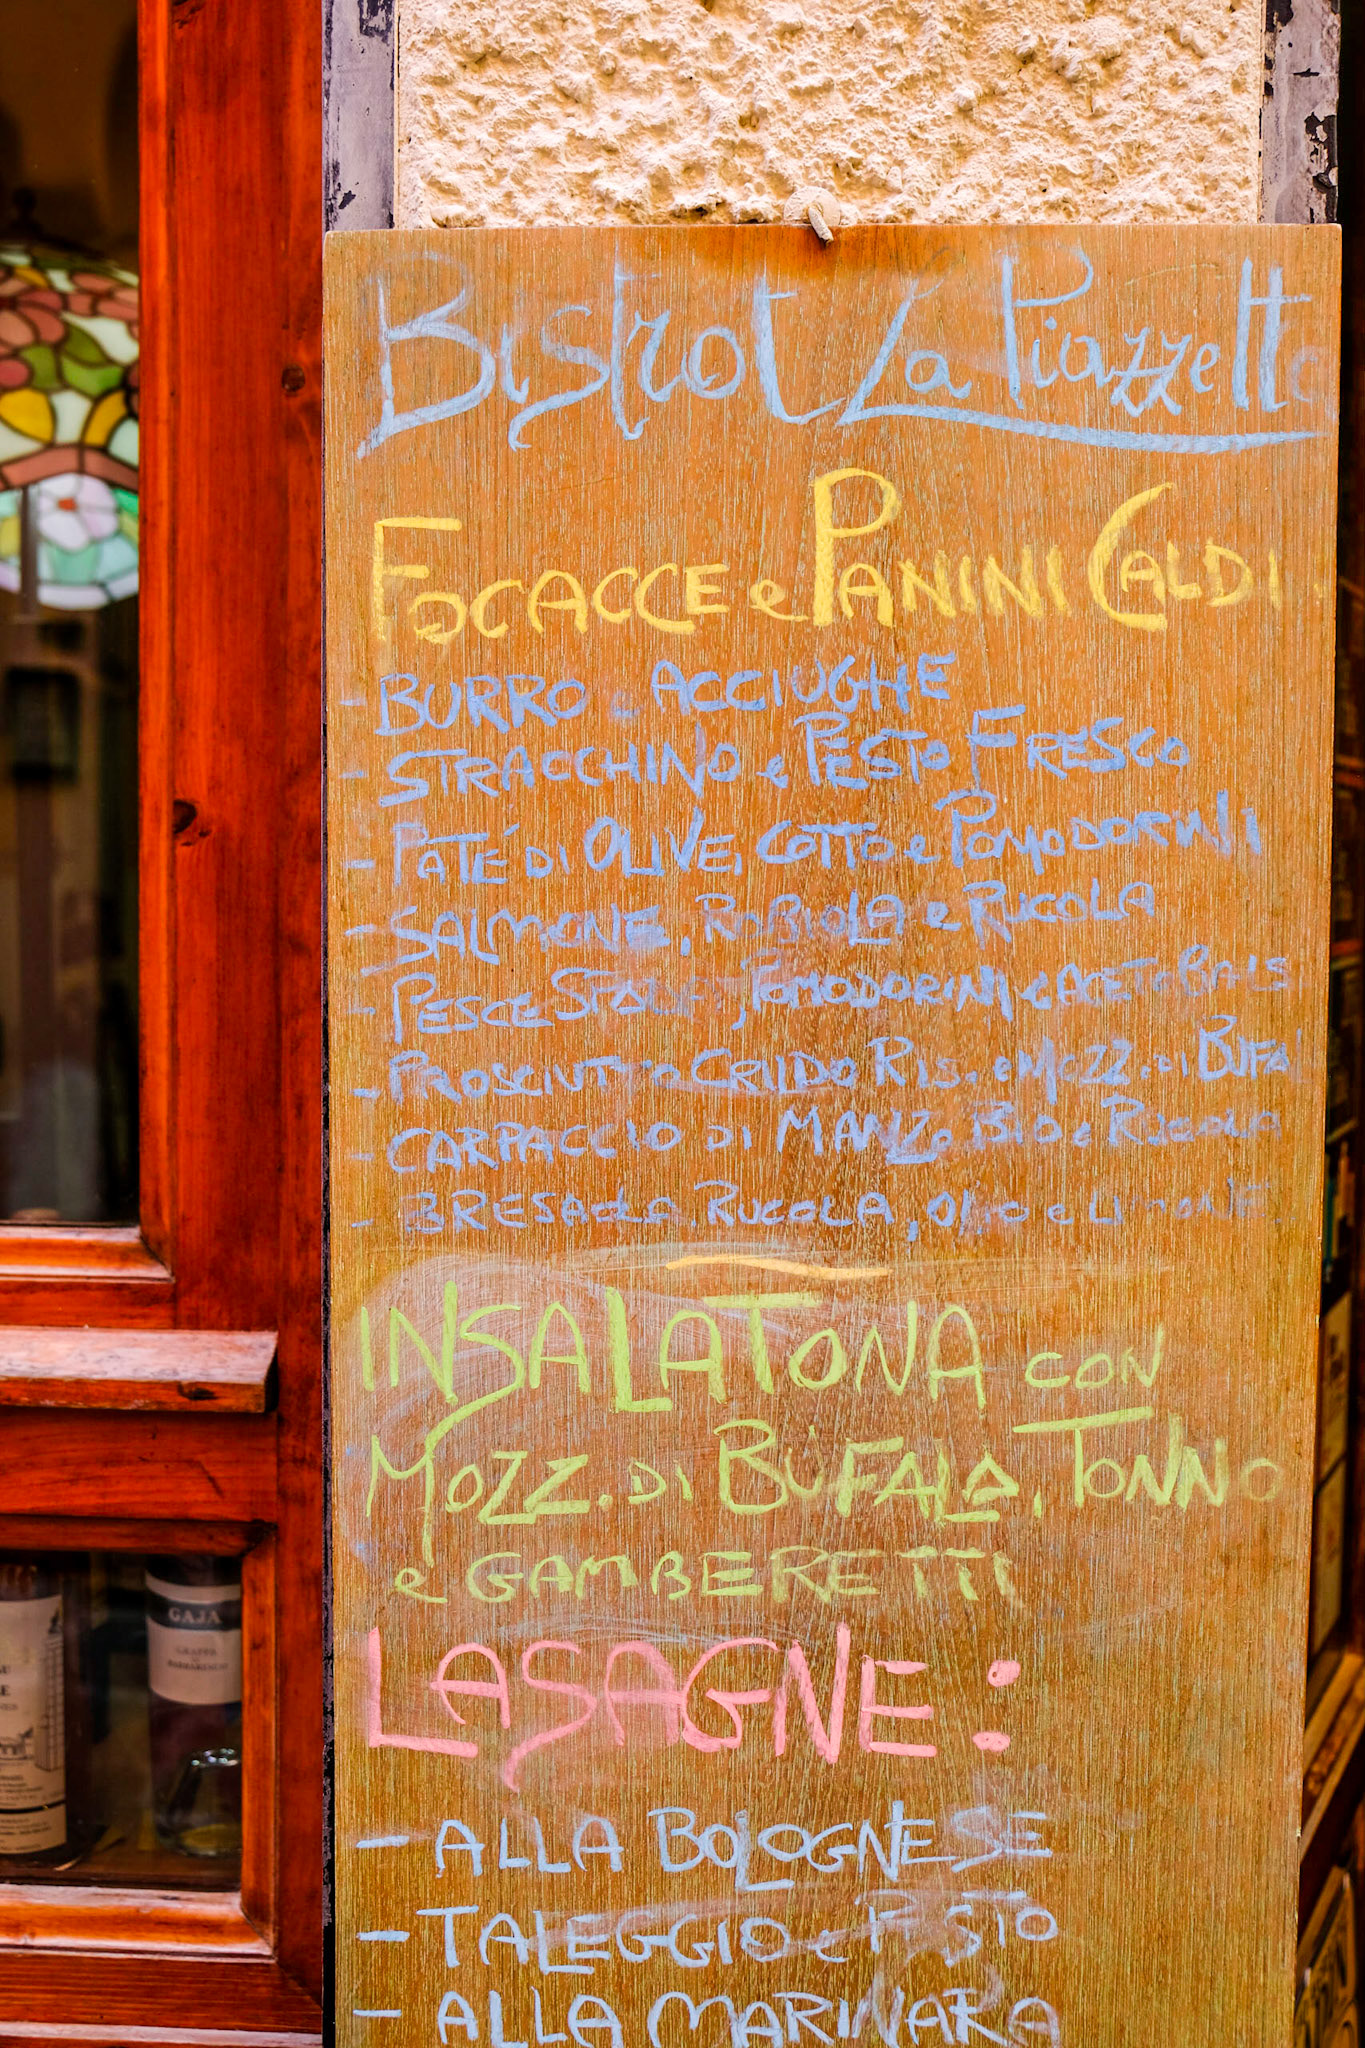 Bistrot La Piazzetta
FOCACCE e PANINI CALDI
- BURRO e ACCIUGHE
- STRACCHINO e PESTO FRESCO
- PATÉ DI OLIVE, COTTO e POMODORINI
- SALMONE, ROBIOLA e RUCOLA
- PESCE SPADA, POMODORINI e ACETO BALS
- PROSCIUTTO CRUDO RIS. e MOZZ. DI BUFAL
- CARPACCIO DI MANZO BIO e RUCOLA
- BRESAOLA, RUCOLA, OLIO e LIMONE
INSALATONA CON
MOZZ. DI BUFALA, TONNO
e GAMBERETTI
LASAGNE:
- ALLA BOLOGNESE
- TALEGGIO e PESTO
- ALLA MARINARA
GAJA
GRAPPA